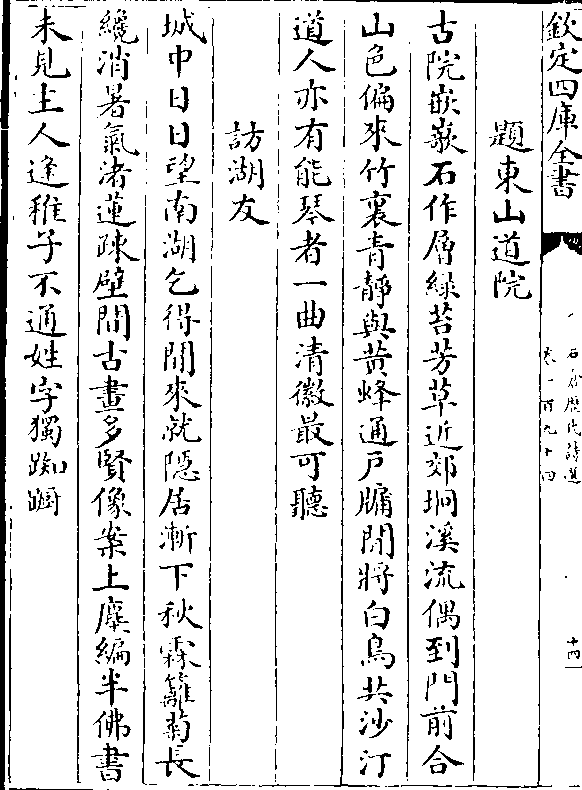 欽定四庫全書
石倉歷代詩選
卷一百九十四
十四
題東山道院
古院嵌嶔石作層綠苔芳草近郊坰溪流偶到門前合
山色偏來竹裏青靜與黃蜂通戶牖閒將白鳥共沙汀
道人亦有能琴者一曲清徽最可聽
訪湖友
城中日日望南湖乞得閒來就隠居漸下秋霖籬菊長
纔消暑氣渚蓮疎壁間古畫多賢像案上麾編半佛書
未見主人逢稚子不通姓字獨踟蹰